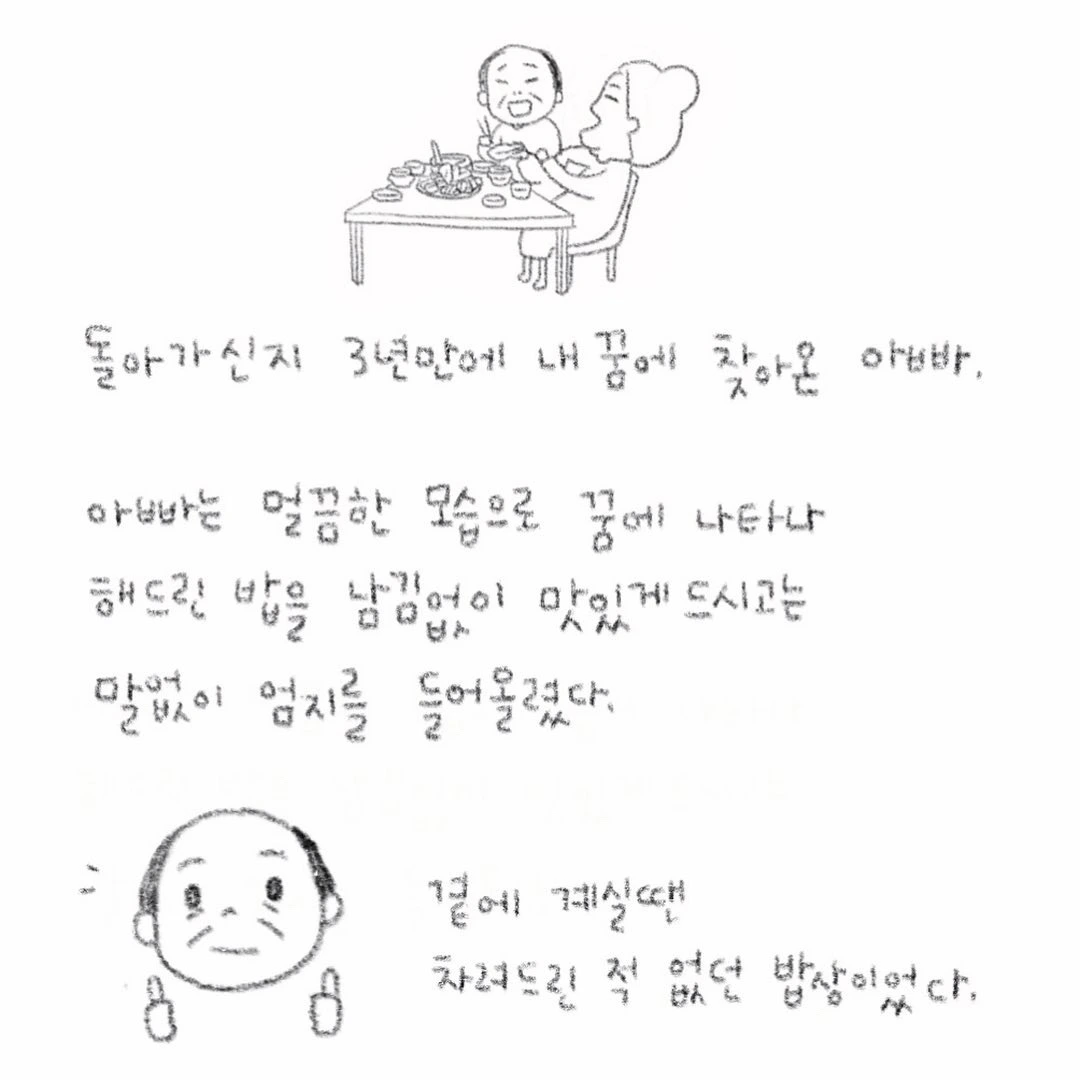 돌아가신지 3년만에 내 꿈에 찾아온 아빠.
아빠는 멀끔한 모습으로 꿈에 나타나
해드린 밥을 남김없이 맛있게 드시고는
말없이 엄지를 들어올렸다.
곁에 계실땐
차려드린 적 없던 밥상이었다.